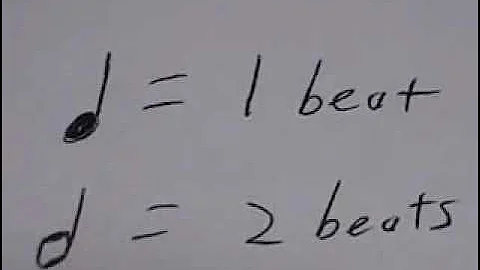 ♩ = 1 beat
𝅗𝅥 = 2 beats